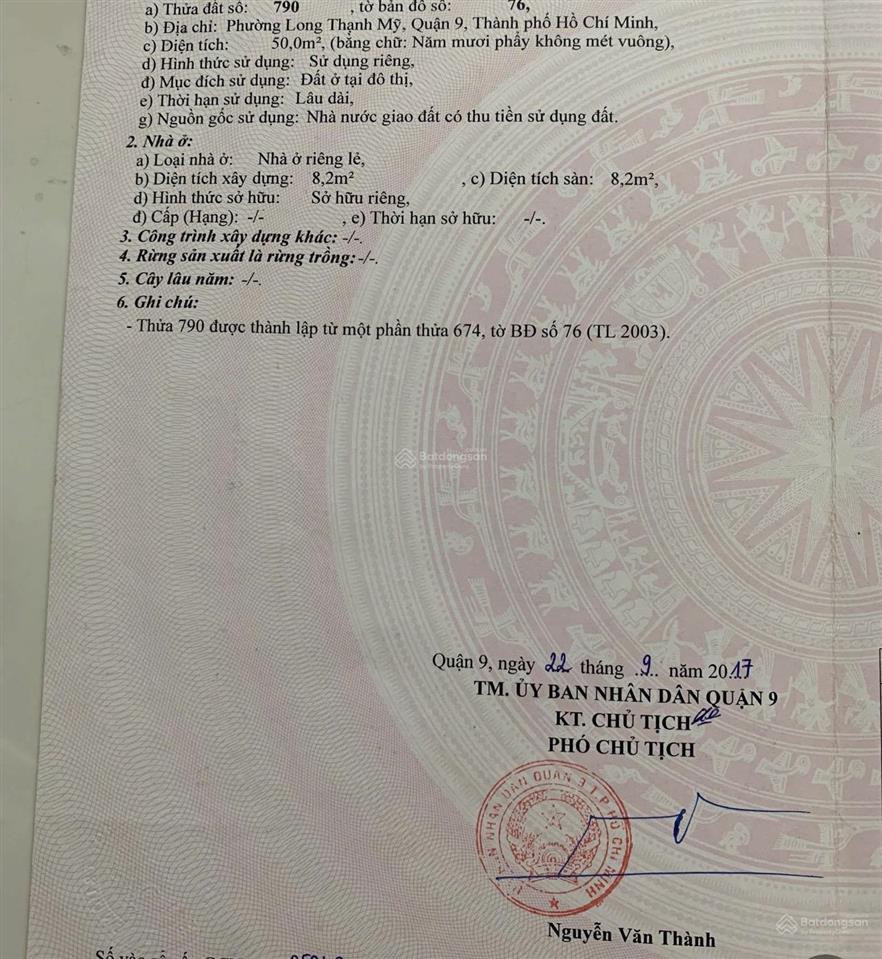 a) Thửa đất số: 790 , tờ bản đồ số: 76,
b) Địa chỉ: Phường Long Thạnh Mỹ, Quận 9, Thành phố Hồ Chí Minh,
c) Diện tích: 50,0m², (bằng chữ: Năm mươi phẩy không mét vuông),
d) Hình thức sử dụng: Sử dụng riêng,
đ) Mục đích sử dụng: Đất ở tại đô thị,
e) Thời hạn sử dụng: Lâu dài,
g) Nguồn gốc sử dụng: Nhà nước giao đất có thu tiền sử dụng đất.
2. Nhà ở:
a) Loại nhà ở: Nhà ở riêng lẻ,
b) Diện tích xây dựng: 8,2m² , c) Diện tích sàn: 8,2m²,
d) Hình thức sở hữu: Sở hữu riêng,
đ) Cấp (Hạng): -/- , e) Thời hạn sở hữu: -/-.
3. Công trình xây dựng khác: -/-.
4. Rừng sản xuất là rừng trồng: -/-.
5. Cây lâu năm: -/-.
6. Ghi chú:
- Thửa 790 được thành lập từ một phần thửa 674, tờ BĐ số 76 (TL 2003).
Batdongsan
Quận 9, ngày 22 tháng .9.. năm 20.17
TM. ỦY BAN NHÂN DÂN QUẬN 9
KT. CHỦ TỊCH
PHÓ CHỦ TỊCH
NHÂN DÂN QUẬN 9 T.P HỒ CHÍ MINH
Nguyễn Văn Thành
Batdongsan